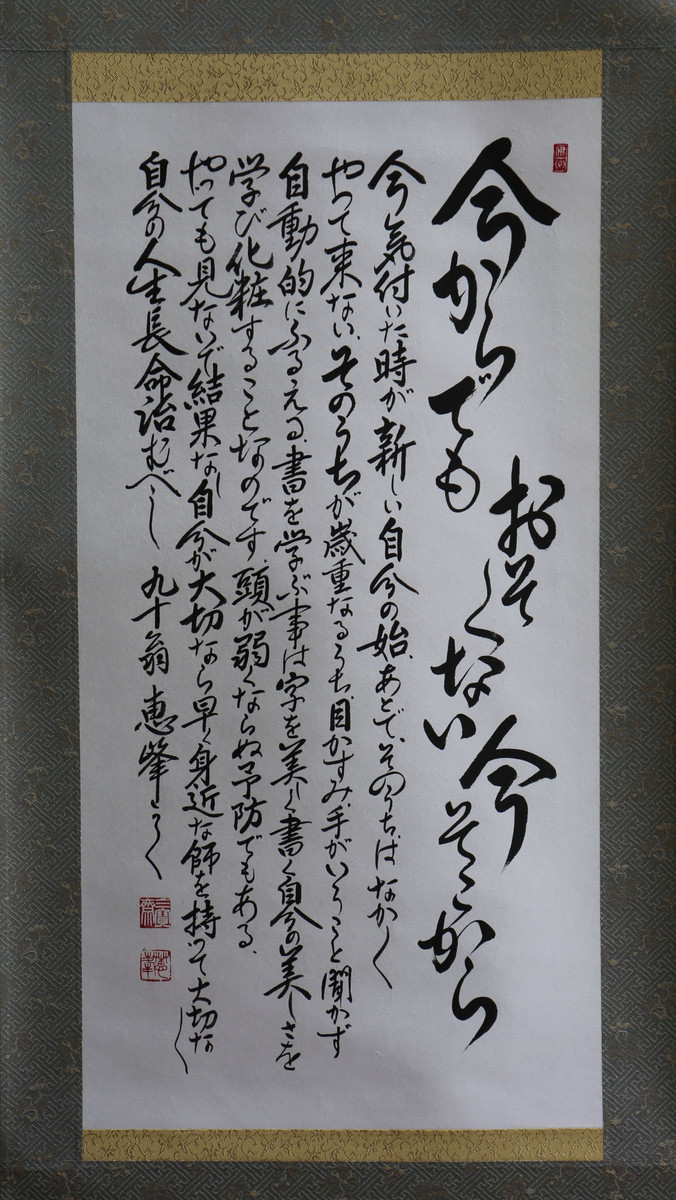 今からでも
おそくない今
そこから
今気付いた時が新しい自分の始、あとで、そのうち、はなか〱
やって来ない、そのうちが歳重なるうち、目かすみ、手がいうこと聞かず
自動的にふるえる、書を学ぶ事は字を美しく書く自分の美しさを
学び化粧することなのです 頭が弱くならぬ予防でもある、
やっても見ないで結果なし自分が大切なら早く身近な師を持って大切な〱
自分の人生長命治むべし 九十翁 恵峰かく